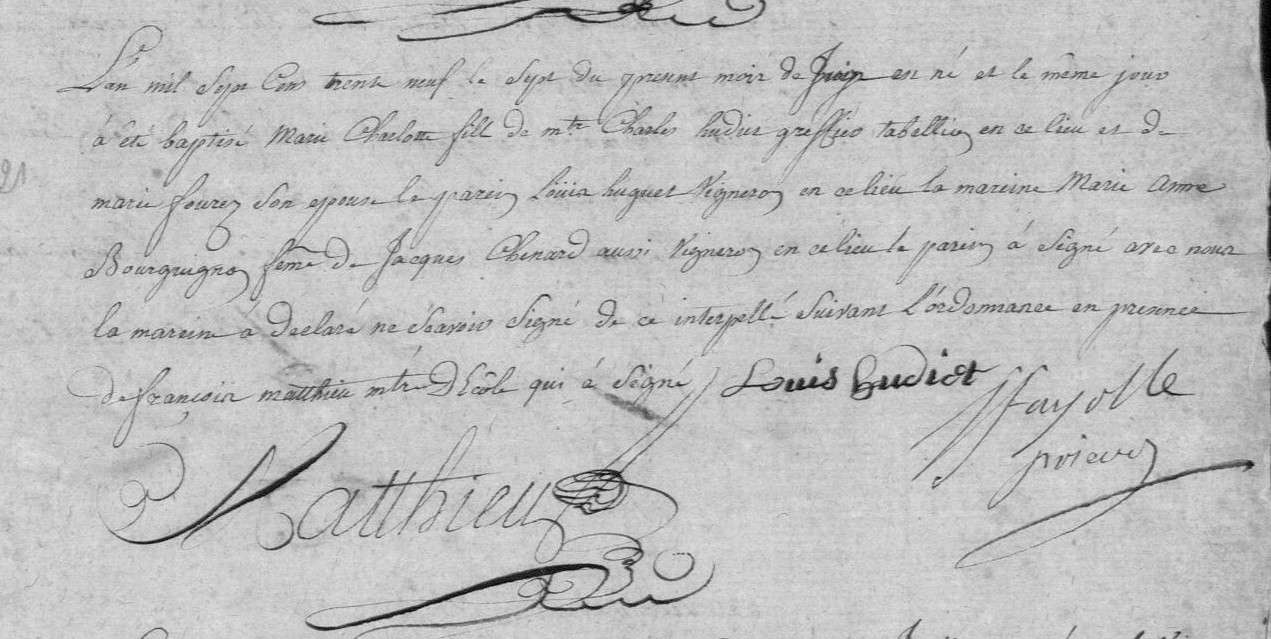 L'an mil Sept Cens trente neuf le Sept du present mois de Juin est né et le même jour
à été baptisé Marie Charlotte fille de mtre Charles hudiet greffier tabellion en ce lieu et de
marie fourez Son epouse le parein Loüis huguet Vigneron en ce lieu la mareine Marie Anne
Bourguignon feme de Jacques Chenard aussi Vigneron en ce lieu le parein à Signé avec nous
la mareine a declaré ne Scavoir Signé de ce interpellé Suivant L'ordonnance en presence
de françois matthieu mtre D'Ecole qui à Signé Louis hudiet ffayolle
prieur
Matthieu